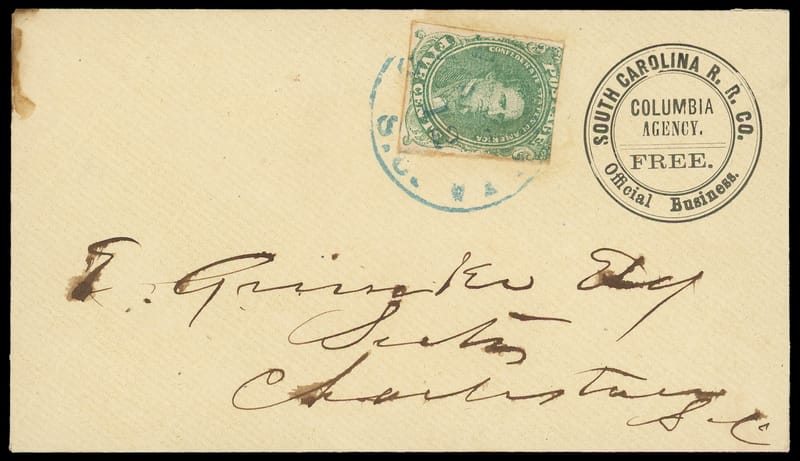 FIVE
HALF OUNCE
POSTAGE
CENTS
CONFEDERATE STATES OF AMERICA
S.C.
SOUTH CAROLINA R. R. CO.
COLUMBIA
AGENCY.
FREE.
Official Business.
E. Grimke Esq
Secty
Charleston
S. C